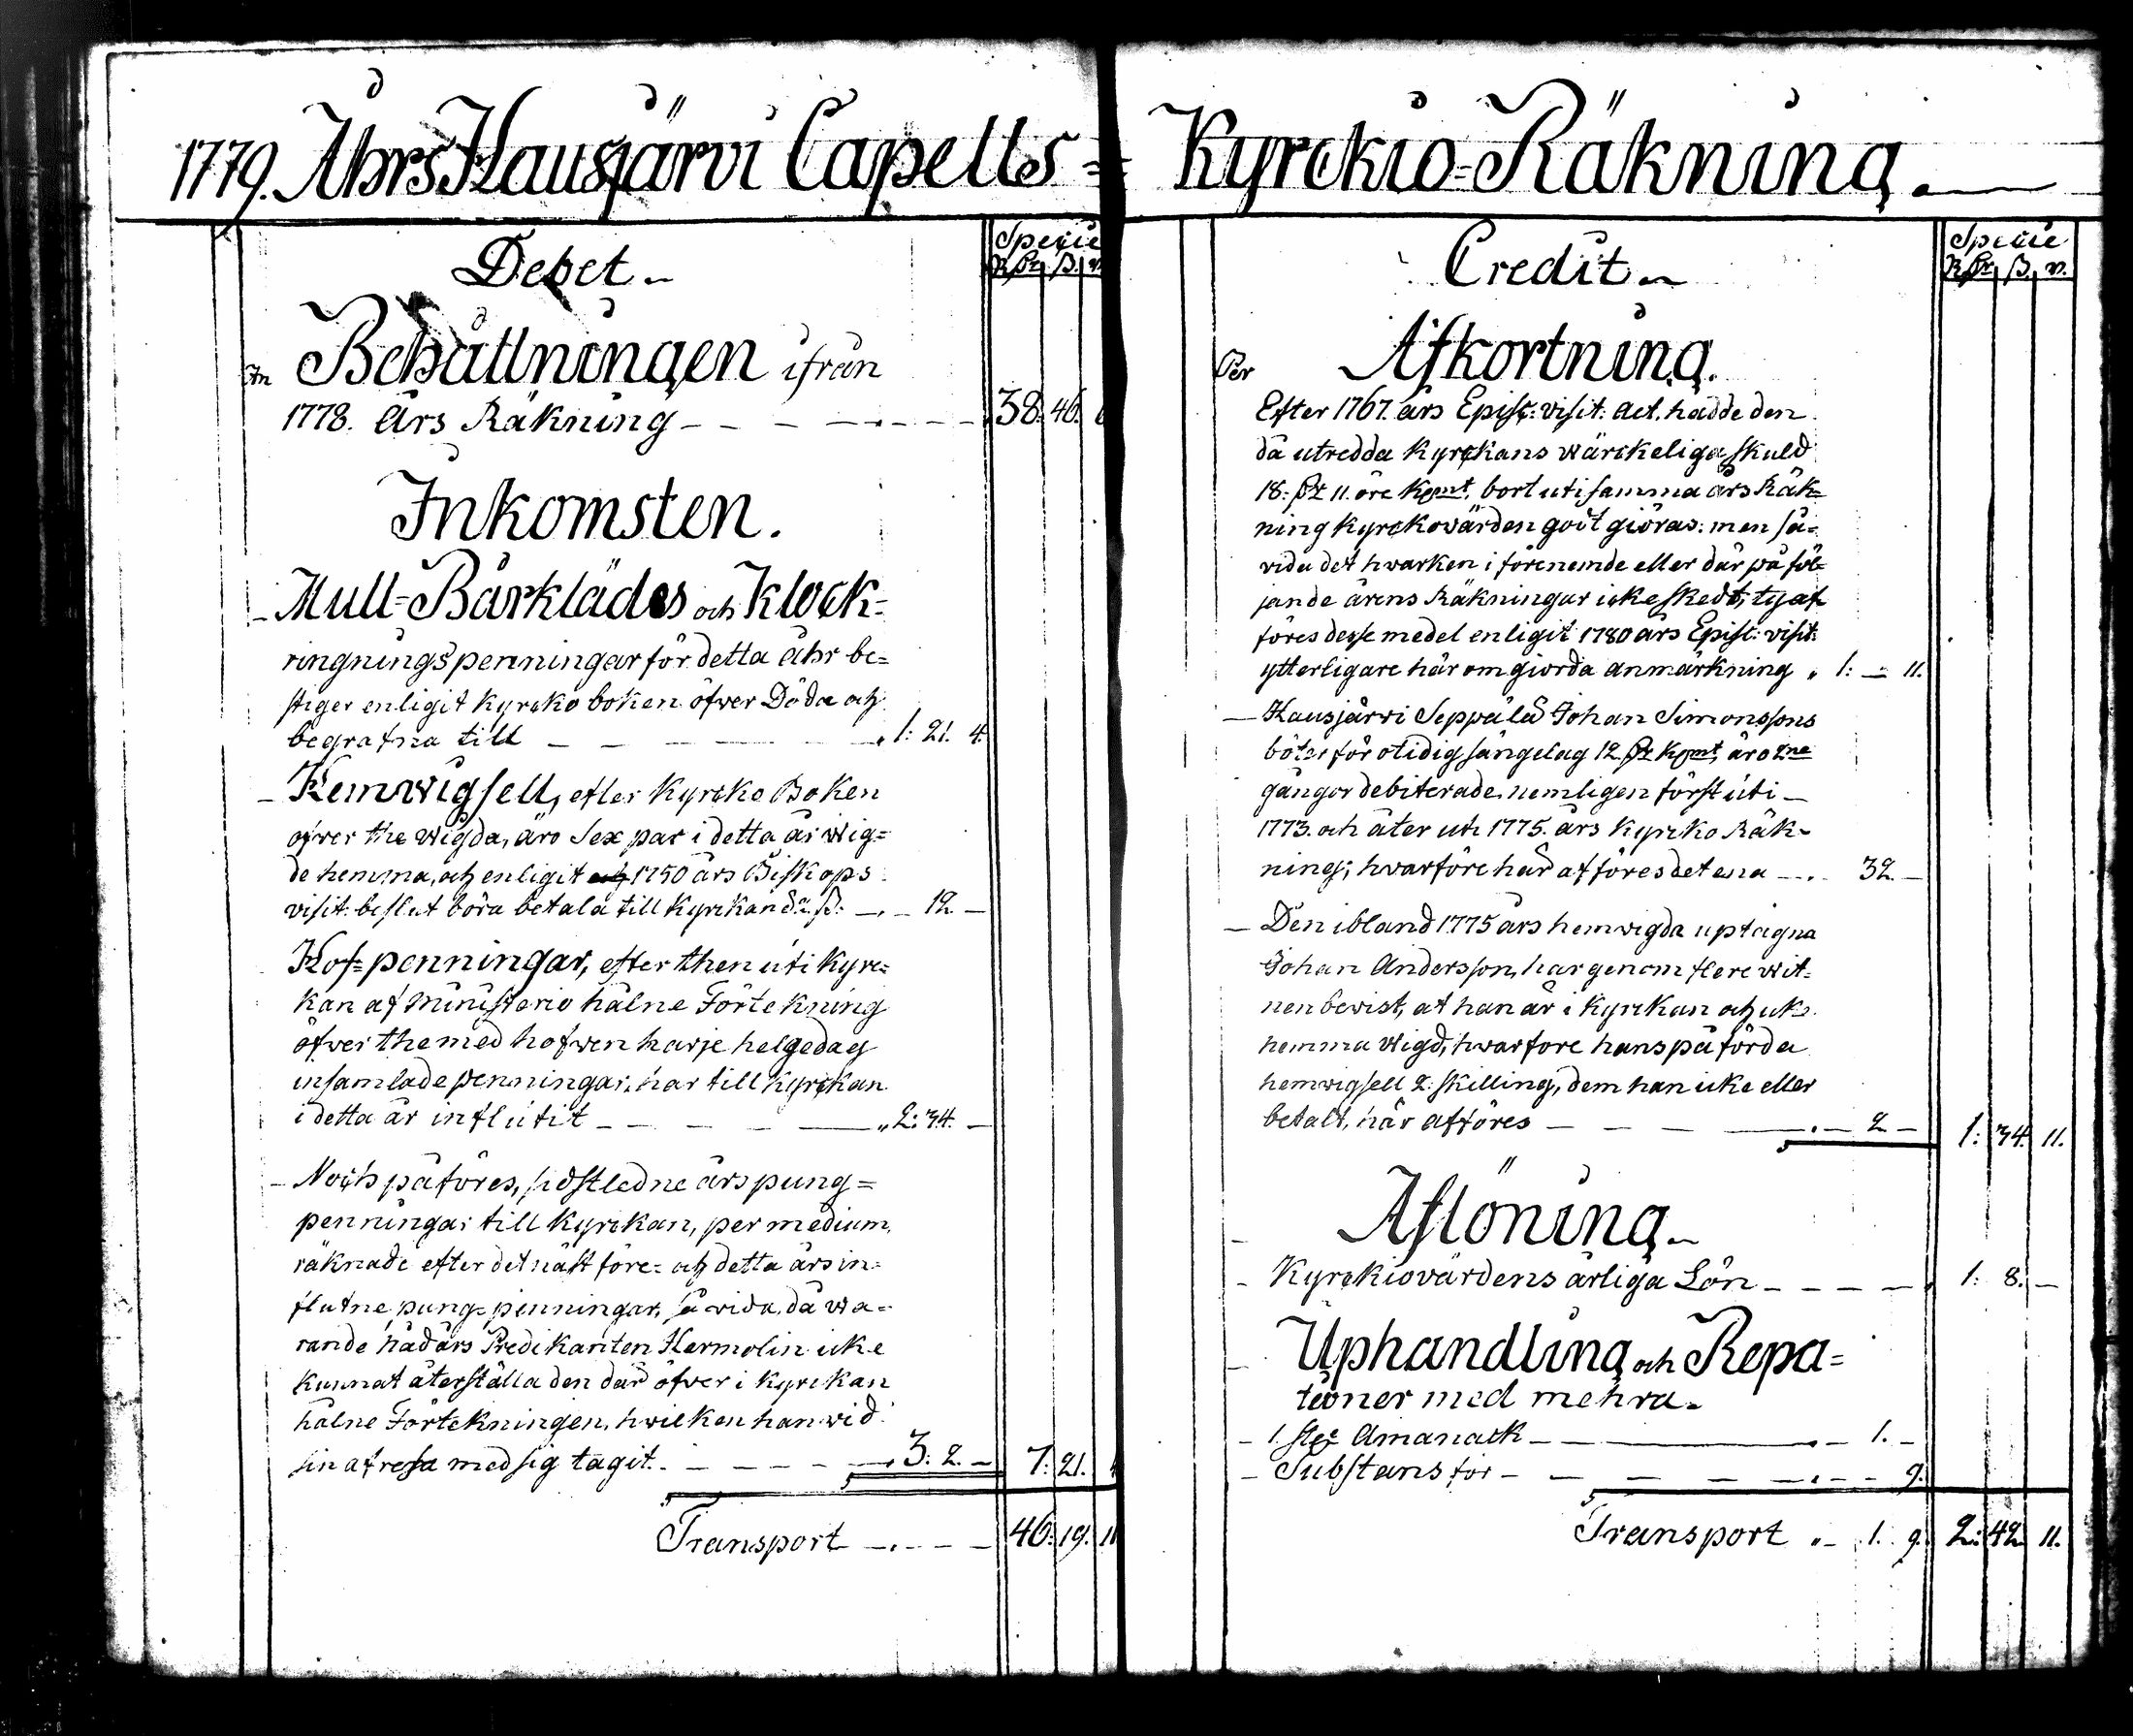 1779. Åhrs Hausjärvi Capells=
Debet
Specie
R. β. r.
An Behållningen ifrån
1778. års Räkning 38. 46.
Inkomsten.
Mull= Bårklädes och Klock=
ringnings penningar för detta åhr be=
stiger enligit kyrcko boken öfwer Döda och
begrafna till 1: 21. 4.
Hemwigsell, efter Kyrcko Boken
öfwer the wigda, äro Sex par i detta år wig=
de hemma, och enligit 1750 års Biskops
visit: beslut böra betala till Kyrckan 12.
Hof=penningar, efter then uti Kyrc=
kan af Ministerio hålne Förtekning
öfwer the med hofwen harje helgedag
insamlade penningar, har till kyrckan
i detta år influtit 2: 34.
Noch påföres, sidstledne års pung=
penningar till Kyrckan, per medium
räknade efter det näst före= och detta års in=
flutne pung=penningar, så vida, då wa=
rande nådårs Predikanten Hermolin icke
kunnat återställa den där öfver i kyrckan
hålne Förtekningen, hwilken han wid
sin afresa med sig tagit. 3: 2. 7: 21.
Transport 46: 19. 11
Kyrckio=Räkning.
Credit
Specie
R. β. r.
Per Afkortning.
Efter 1767. års Episc: visit: act. hadde den
då utredda Kyrckans wärckeliga skuld
18: 11. öre Kopmt, bort uti samma års Räk=
ning kyrckovärden godt giöras: men så=
vida det hwarken i förenemde eller där på föl=
jande årens Räkningar icke skedt, ty af
föres desse medel enligit 1780 års Episc: visit:
ytterligare här om giorda anmärkning 1: 11.
Hausjärvi Seppälä Johan Simonssons
böter för otidig sängelag 12. Kopmt, äro 2ne
gångor debiterade, nemligen först uti
1773. och åter uti 1775. års Kyrcko Räk=
ning; hwarföre här afföres det ena 32.
Den ibland 1775 års hemwigda uptagna
Johan Andersson, har genom flere wit=
nen bevist, at han är i Kyrckan och icke
hemma wigd, hwarfore hans på förda
hemwigsell 2: skilling, dem han icke eller
betalt, här afföres 2 1: 34. 11.
Aflöning
Kyrckiovärdens årliga Lön 1: 8.
Uphandling och Repa=
tioner med mehra.
1. st Almanack 1.
Substans för 9.
Transport 1. 9. 2: 42 11.